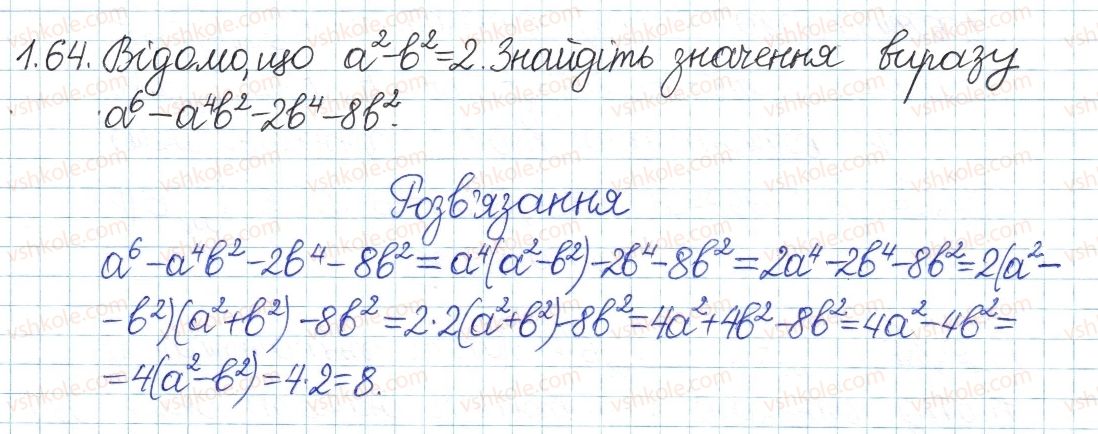 1.64. Відомо, що a²-b²=2. Знайдіть значення виразу
a⁶-a⁴b²-2b⁴-8b².
Розв'язання
a⁶-a⁴b²-2b⁴-8b²=a⁴(a²-b²)-2b⁴-8b²=2a⁴-2b⁴-8b²=2(a²-
-b²)(a²+b²)-8b²=2·2(a²+b²)-8b²=4a²+4b²-8b²=4a²-4b²=
=4(a²-b²)=4·2=8.